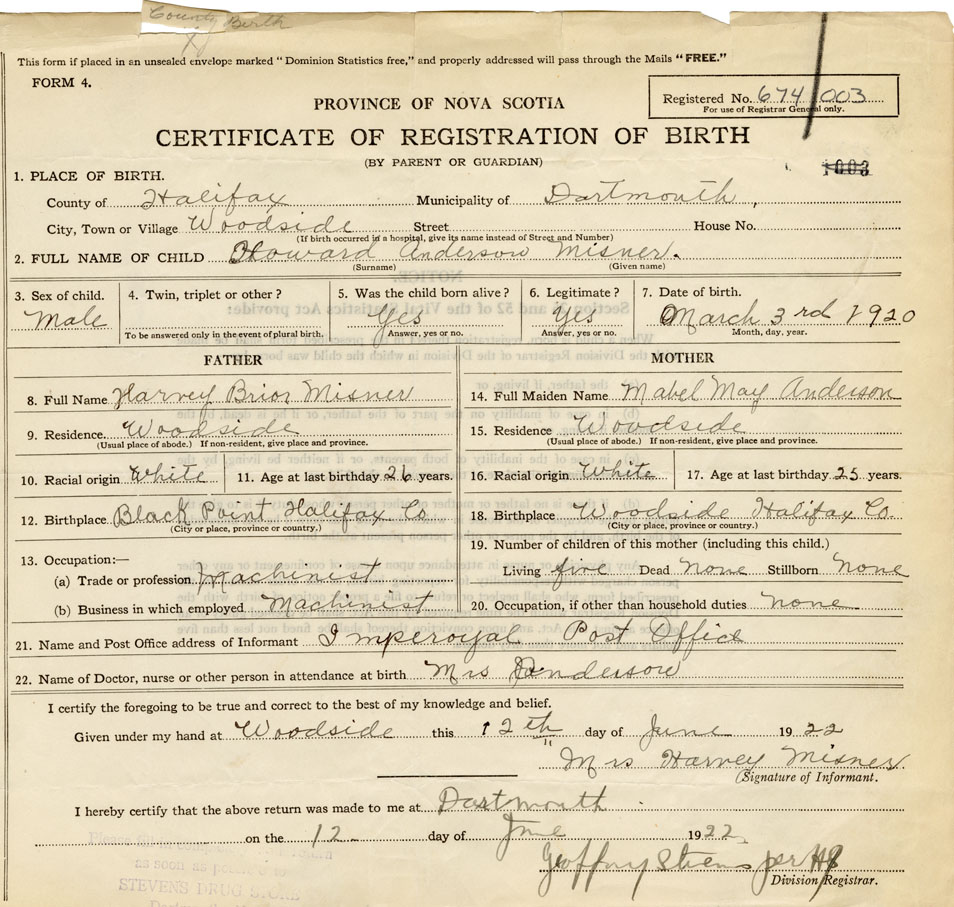 County Birth
This form if placed in an unsealed envelope marked "Dominion Statistics free," and properly addressed will pass through the Mails "FREE."
FORM 4.
Registered No. 674 003
For use of Registrar General only.
PROVINCE OF NOVA SCOTIA
CERTIFICATE OF REGISTRATION OF BIRTH
(BY PARENT OR GUARDIAN)
1003
1. PLACE OF BIRTH.
County of Halifax Municipality of Dartmouth,
City, Town or Village Woodside Street House No.
(If birth occurred in a hospital, give its name instead of Street and Number)
2. FULL NAME OF CHILD Howard Anderson Misner.
(Surname) (Given name)
3. Sex of child. 4. Twin, triplet or other? 5. Was the child born alive? 6. Legitimate? 7. Date of birth.
Male Yes Yes March 3rd 1920
To be answered only in the event of plural birth. Answer, yes or no. Answer, yes or no. Month, day, year.
FATHER
8. Full Name Harvey Brior Misner
9. Residence. Woodside
(Usual place of abode.) If non-resident, give place and province.
10. Racial origin White 11. Age at last birthday 26 years.
12. Birthplace Black Point Halifax Co
(City or place, province or country.)
13. Occupation:—
(a) Trade or profession Machinist
(b) Business in which employed Machinist
MOTHER
14. Full Maiden Name Mabel May Anderson
15. Residence Woodside
(Usual place of abode.) If non-resident, give place and province.
16. Racial origin White 17. Age at last birthday 25 years.
18. Birthplace Woodside Halifax Co.
(City or place, province or country.)
19. Number of children of this mother (including this child.)
Living five Dead None Stillborn None
20. Occupation, if other than household duties none
21. Name and Post Office address of Informant Imperoyal Post Office
22. Name of Doctor, nurse or other person in attendance at birth Mrs Anderson
I certify the foregoing to be true and correct to the best of my knowledge and belief.
Given under my hand at Woodside this 12th day of June 1922
Mrs Harvey Misner
(Signature of Informant.
I hereby certify that the above return was made to me at Dartmouth
on the 12 day of June 1922
per
Division Registrar.
as soon as
to
STEVENS DRUG STORE